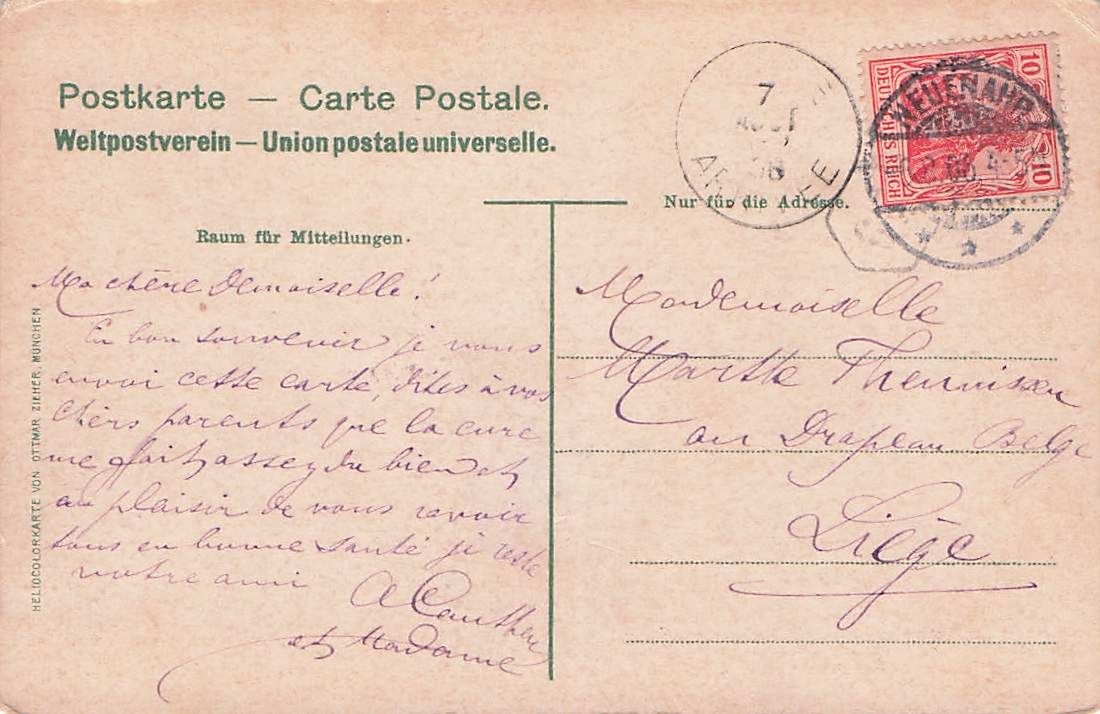 Postkarte — Carte Postale.
Weltpostverein — Union postale universelle.
Nur für die Adresse.
Raum für Mitteilungen.
7
DEUTSCHES REICH
10
10
NEUENAHR
* * *
Ma chère Demoiselle!
En bon souvenir je vous
envoi cette carte, dites à vos
chers parents que la cure
me fait assez du bien et
au plaisir de vous revoir
tous en bonne santé je reste
votre ami
et Madame
Mademoiselle
Marthe Theunissen
au Drapeau Belge
Liège
HELIOCOLORKARTE VON OTTMAR ZIEHER, MÜNCHEN